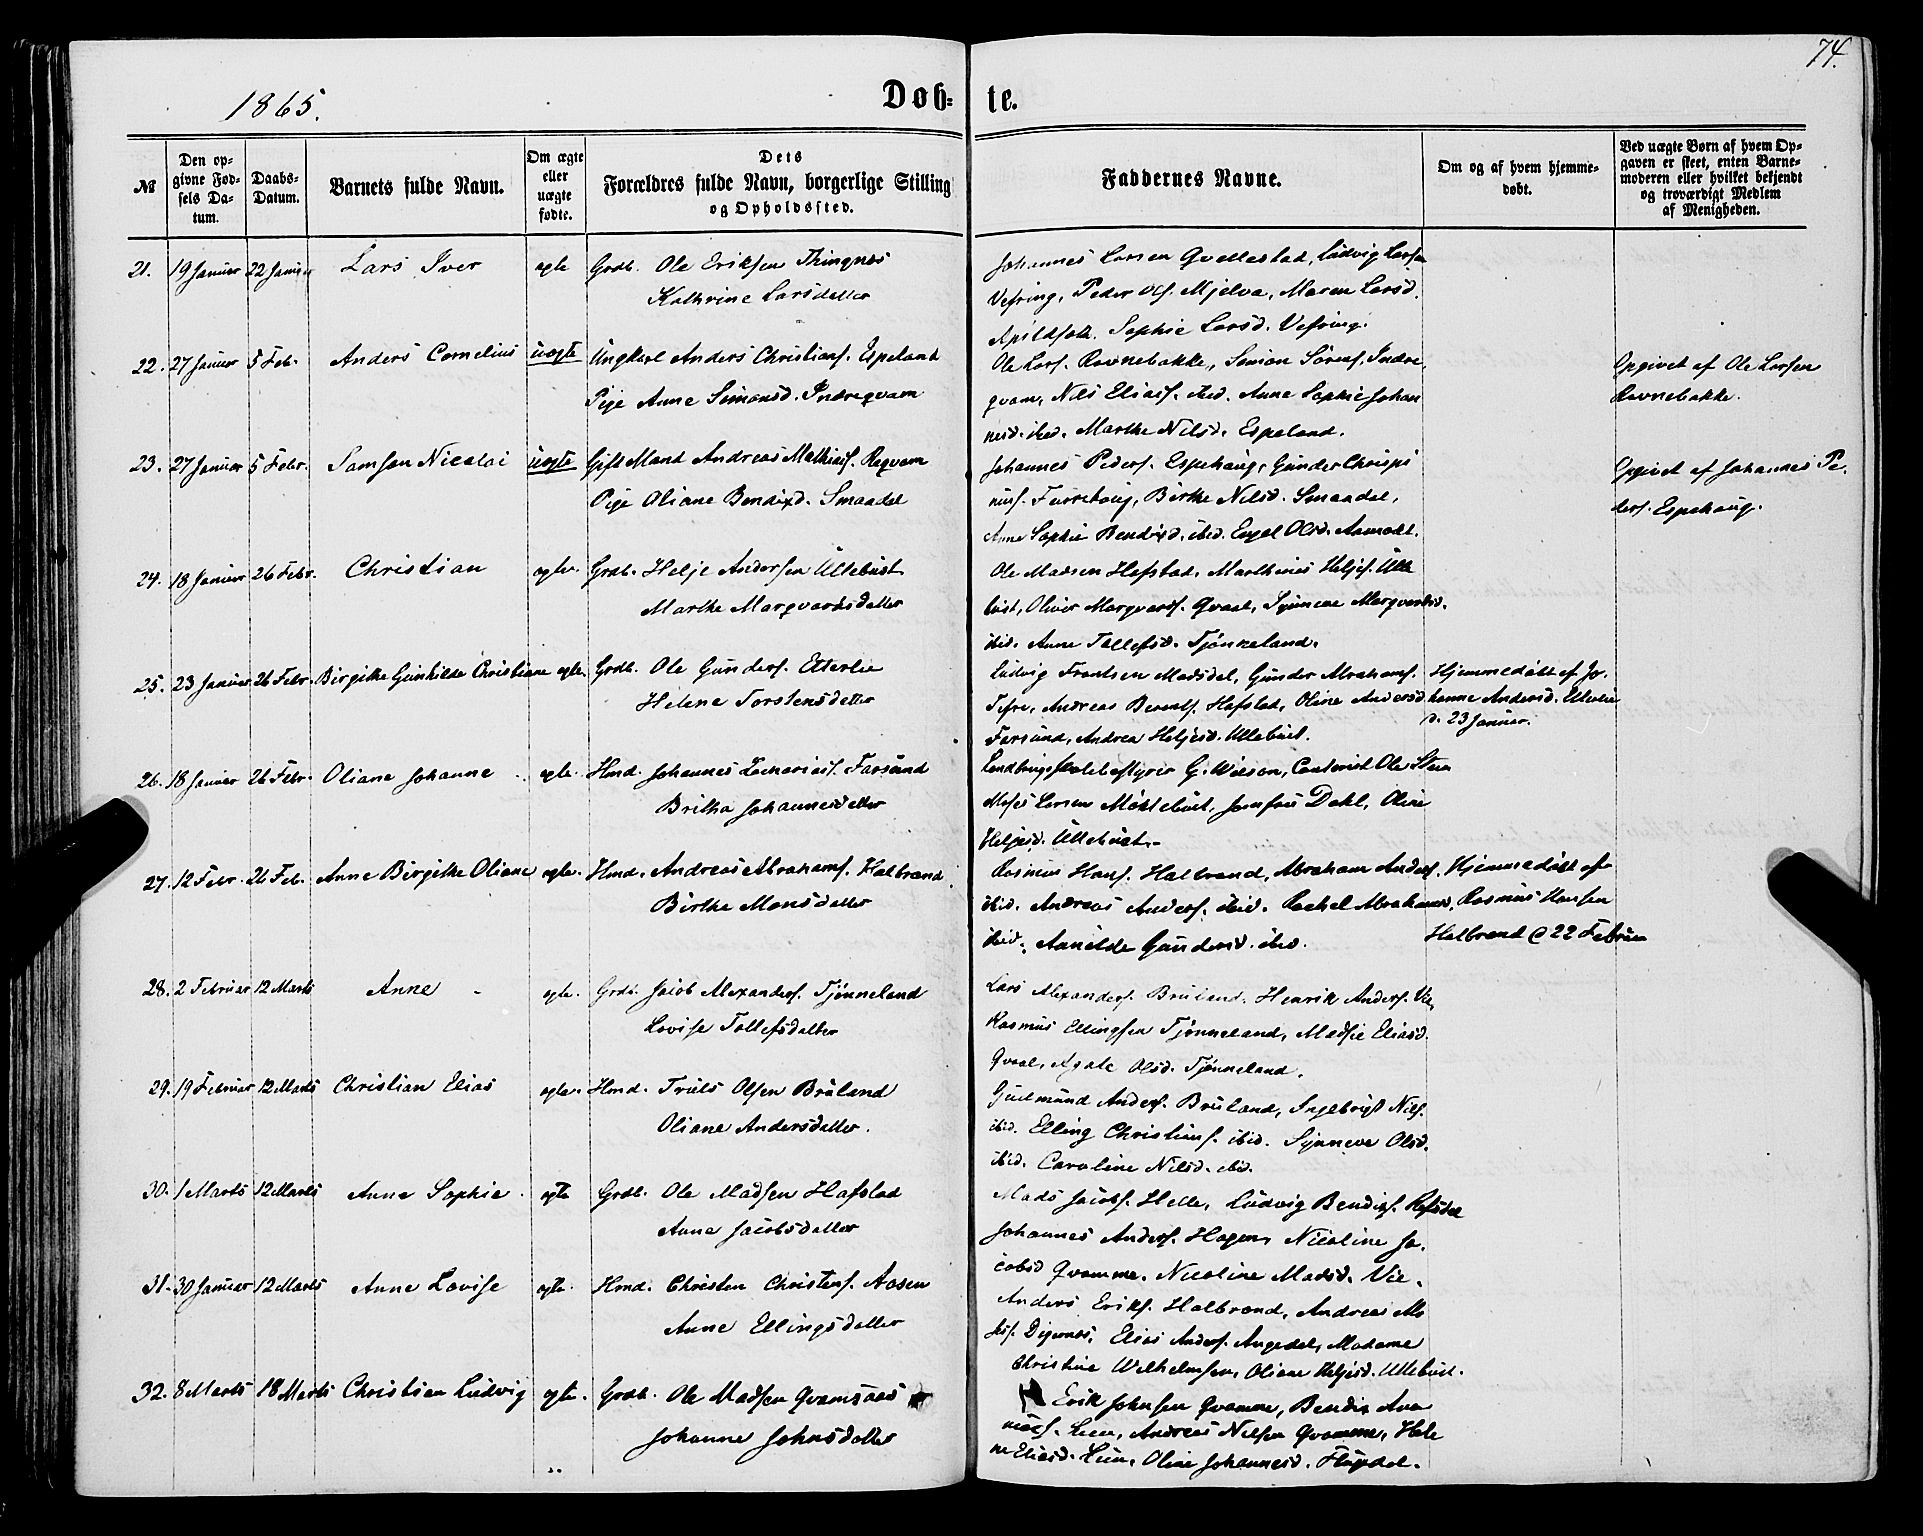 74.
1865.
Døb-
te.
№
Den op-
givne Fød-
sels Da-
tum.
Daabs-
Datum.
Barnets fulde Navn.
Om ægte
eller
uægte
fødte.
Dets
Forældres fulde Navn, borgerlige Stilling
og Opholdssted.
Faddernes Navne.
Om og af hvem hjemme-
døbt.
Ved uægte Børn af hvem Op-
gaven er skeet, enten Barne-
moderen eller hvilket bekjendt
og troværdigt Medlem
af Menigheden.
21. 19 Januar 22 Januar Lars Iver ægte Grdb. Ole Eriksen Thingnes
Kathrine Larsdatter
Johannes Larsen Qvellestad, Ludvig Larsen
Vefring, Peder Ols. Mjelva, Maren Larsd.
Sophie Larsd. Vefring.
22. 27 Januar 5 Feb. Anders Cornelius uægte Ungkarl Anders Christians. Espeland
Pige Anne Simonsd. Indreqvam
Ole Lars. Ravnebakke, Simon Sørens. Indre
qvam, Nils Elias. ibid. Anne Sophie Johan
nesd. ibid. Marthe Nilsd. Espeland.
Opgivet af Ole Larsen
Ravnebakke.
23. 27 Januar 5 Febr. Samson Nicolai uægte Gift Mand Andreas Mathias. Reqvam
Pige Oliane Bendixd. Smaadal
Johannes Peders. Espehaug, Gunder Chrispi
nus. Furrehaug, Birthe Nilsd. Smaadal,
Anne Sophie Bendixd. ibid. Engel Olsd. Aamodt.
Opgivet af Johannes Pe-
ders. Espehaug.
24. 18 Januar 26 Febr. Christian ægte. Grdb. Helje Andersen Ullebust
Marthe Marqvardsdatter
Ole Madsen Hafstad, Marthinus Heljes. Ulle
bust, Oliver Marqvards. Qvaal, Synneve Marqvardsd.
ibid. Anne Tollefsd. Tjønneland.
25. 23 Januar 26 Febr. Birgithe Gunhilde Christiane ægte. Grdb. Ole Gunders. Etterlie
Helene Torstensdatter
Ludvig Frantsen Madsdal, Gunder Abrahams.
Tefre, Andreas Berents. Hafstad, Oline Andersd
Farsund, Andrea Heljesd. Ullebust.
Hjemmedøbt af Jo-
hanne Andersd. Etterlie
d. 23 Januar.
26. 18 Januar 26 Febr. Oliane Johanne ægte. Hmd. Johannes Zacharias. Farsund
Britha Johannesdatter
Landbrugsskolebestyrer G. Wilson, Contorist Ole Steen
Moses Larsen Myklebust, Jomfru Dahl, Oline
Heljesd. Ullebust.
27. 12 Febr. 26 Feb. Anne Birgithe Oliane ægte. Hmd. Andreas Abrahams. Halbrand
Birthe Monsdatter
Rasmus Hans. Halbrand, Abraham Anders.
ibid. Andreas Anders. ibid. Rachel Abrahamsd.
ibid. Anne Gundersd. ibid.
Hjemmedøbt af
Rasmus Hansen
Halbrand d 22 Februar
28. 2 Februar 12 Marts Anne ægte. Grdb. Jacob Alexanders. Tjønneland
Lovise Tollefsdatter
Lars Alexanders. Bruland, Henrik Anders. Vie,
Rasmus Ellingsen Tjønneland, Madsie Eliasd.
Qvaal, Agate Olsd. Tjønneland.
29. 19 Februar 12 Marts Christian Elias ægte. Hmd. Truls Olsen Bruland
Oliane Andersdatter.
Gudmund Anders. Bruland, Ingebrigt Nils.
ibid. Elling Christians. ibid. Synneve Olsd.
ibid. Caroline Nilsd. ibid.
30. 1 Marts 12 Marts Anne Sophie. ægte Grdb. Ole Madsen Hafstad
Anne Jacobsdatter
Mads Jacobs. Helle, Ludvig Bendixs. Refsdal
Johannes Anders. Hagen, Nicoline Ja-
cobsd Qvamme, Nicoline Madsd. Vie.
31. 30 Januar 12 Marts Anne Lovise ægte. Hmd. Christen Christens. Aasen
Anne Ellingsdatter
Anders Eriks. Halbrand, Andreas Mo
ses. Digernes, Elias Anders. Angedal, Madame
Christine Wilhelmsen, Oliane Heljesd. Ullebust.
32. 8 Marts 18 Marts Christian Ludvig ægte. Grdb. Ole Madsen Qvamsaas
Johanne Johnsdatter
Erik Johnsen Qvamme, Bendix
Andreas Nilsen Qvamme, Hele
ne Eliasd. Oline Johannesd. Flugedal.